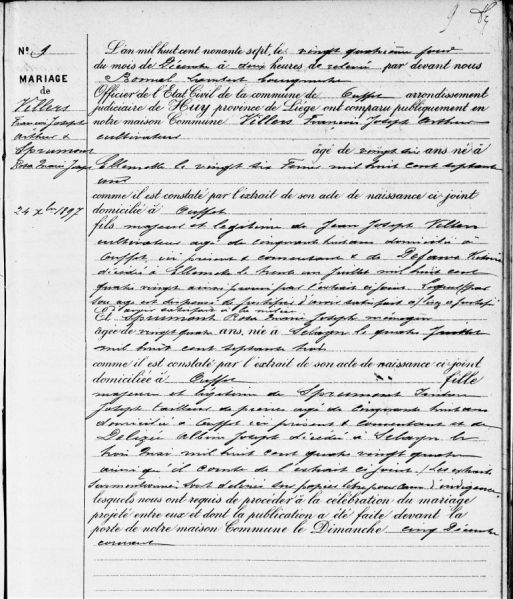 9
N° 9
MARIAGE
de
Villers
François Joseph
Arthur &
Sprumont
Rosa Marie Joseph
24 Xbre 1897
L'an mil huit cent nonante sept, le vingt quatrième jour
du mois de Décembre à deux heures de relevée par devant nous
Lambert Bourgmestre
Officier de l'Etat Civil de la commune de Ouffet arrondissement
judiciaire de Huy province de Liège ont comparu publiquement en
notre maison Commune Villers François Joseph Arthur
cultivateur
âgé de vingt six ans né à
Ellemelle le vingt six mil huit cent septante
un
comme il est constaté par l'extrait de son acte de naissance ci joint
domicilié à Ouffet
fils majeur et légitime de Jean Joseph Villers
cultivateur agé de cinquante huit ans domicilié à
Ouffet ici présent & consentant & de Victoire
décédée à Ellemelle le trente un Juillet mil huit cent
quatre vingt ainsi prouvé par l'extrait ci joint.
son age est dispensé de justifier d'avoir satisfait
Et Sprumont Rosa Marie Joseph ménagère
âgée de vingt quatre ans, née à Seilayn le quatre Juillet
mil huit cent septante trois
comme il est constaté par l'extrait de son acte de naissance ci joint
domiciliée à Ouffet fille
majeure et légitime de Sprumont
Joseph tailleur de pierres agé de cinquante huit ans
domicilié à Ouffet ici présent & consentant et de
Joseph décédée à le
trois Mai mil huit cent quatre vingt quatre
ainsi qu'il conste de l'extrait ci joint. Les extraits
susmentionnés sont délivrés sur papier libre pour cause d'indigence
lesquels nous ont requis de procéder à la célébration du mariage
projeté entre eux et dont la publication a été faite devant la
porte de notre maison Commune le Dimanche cinq Décembre
courant